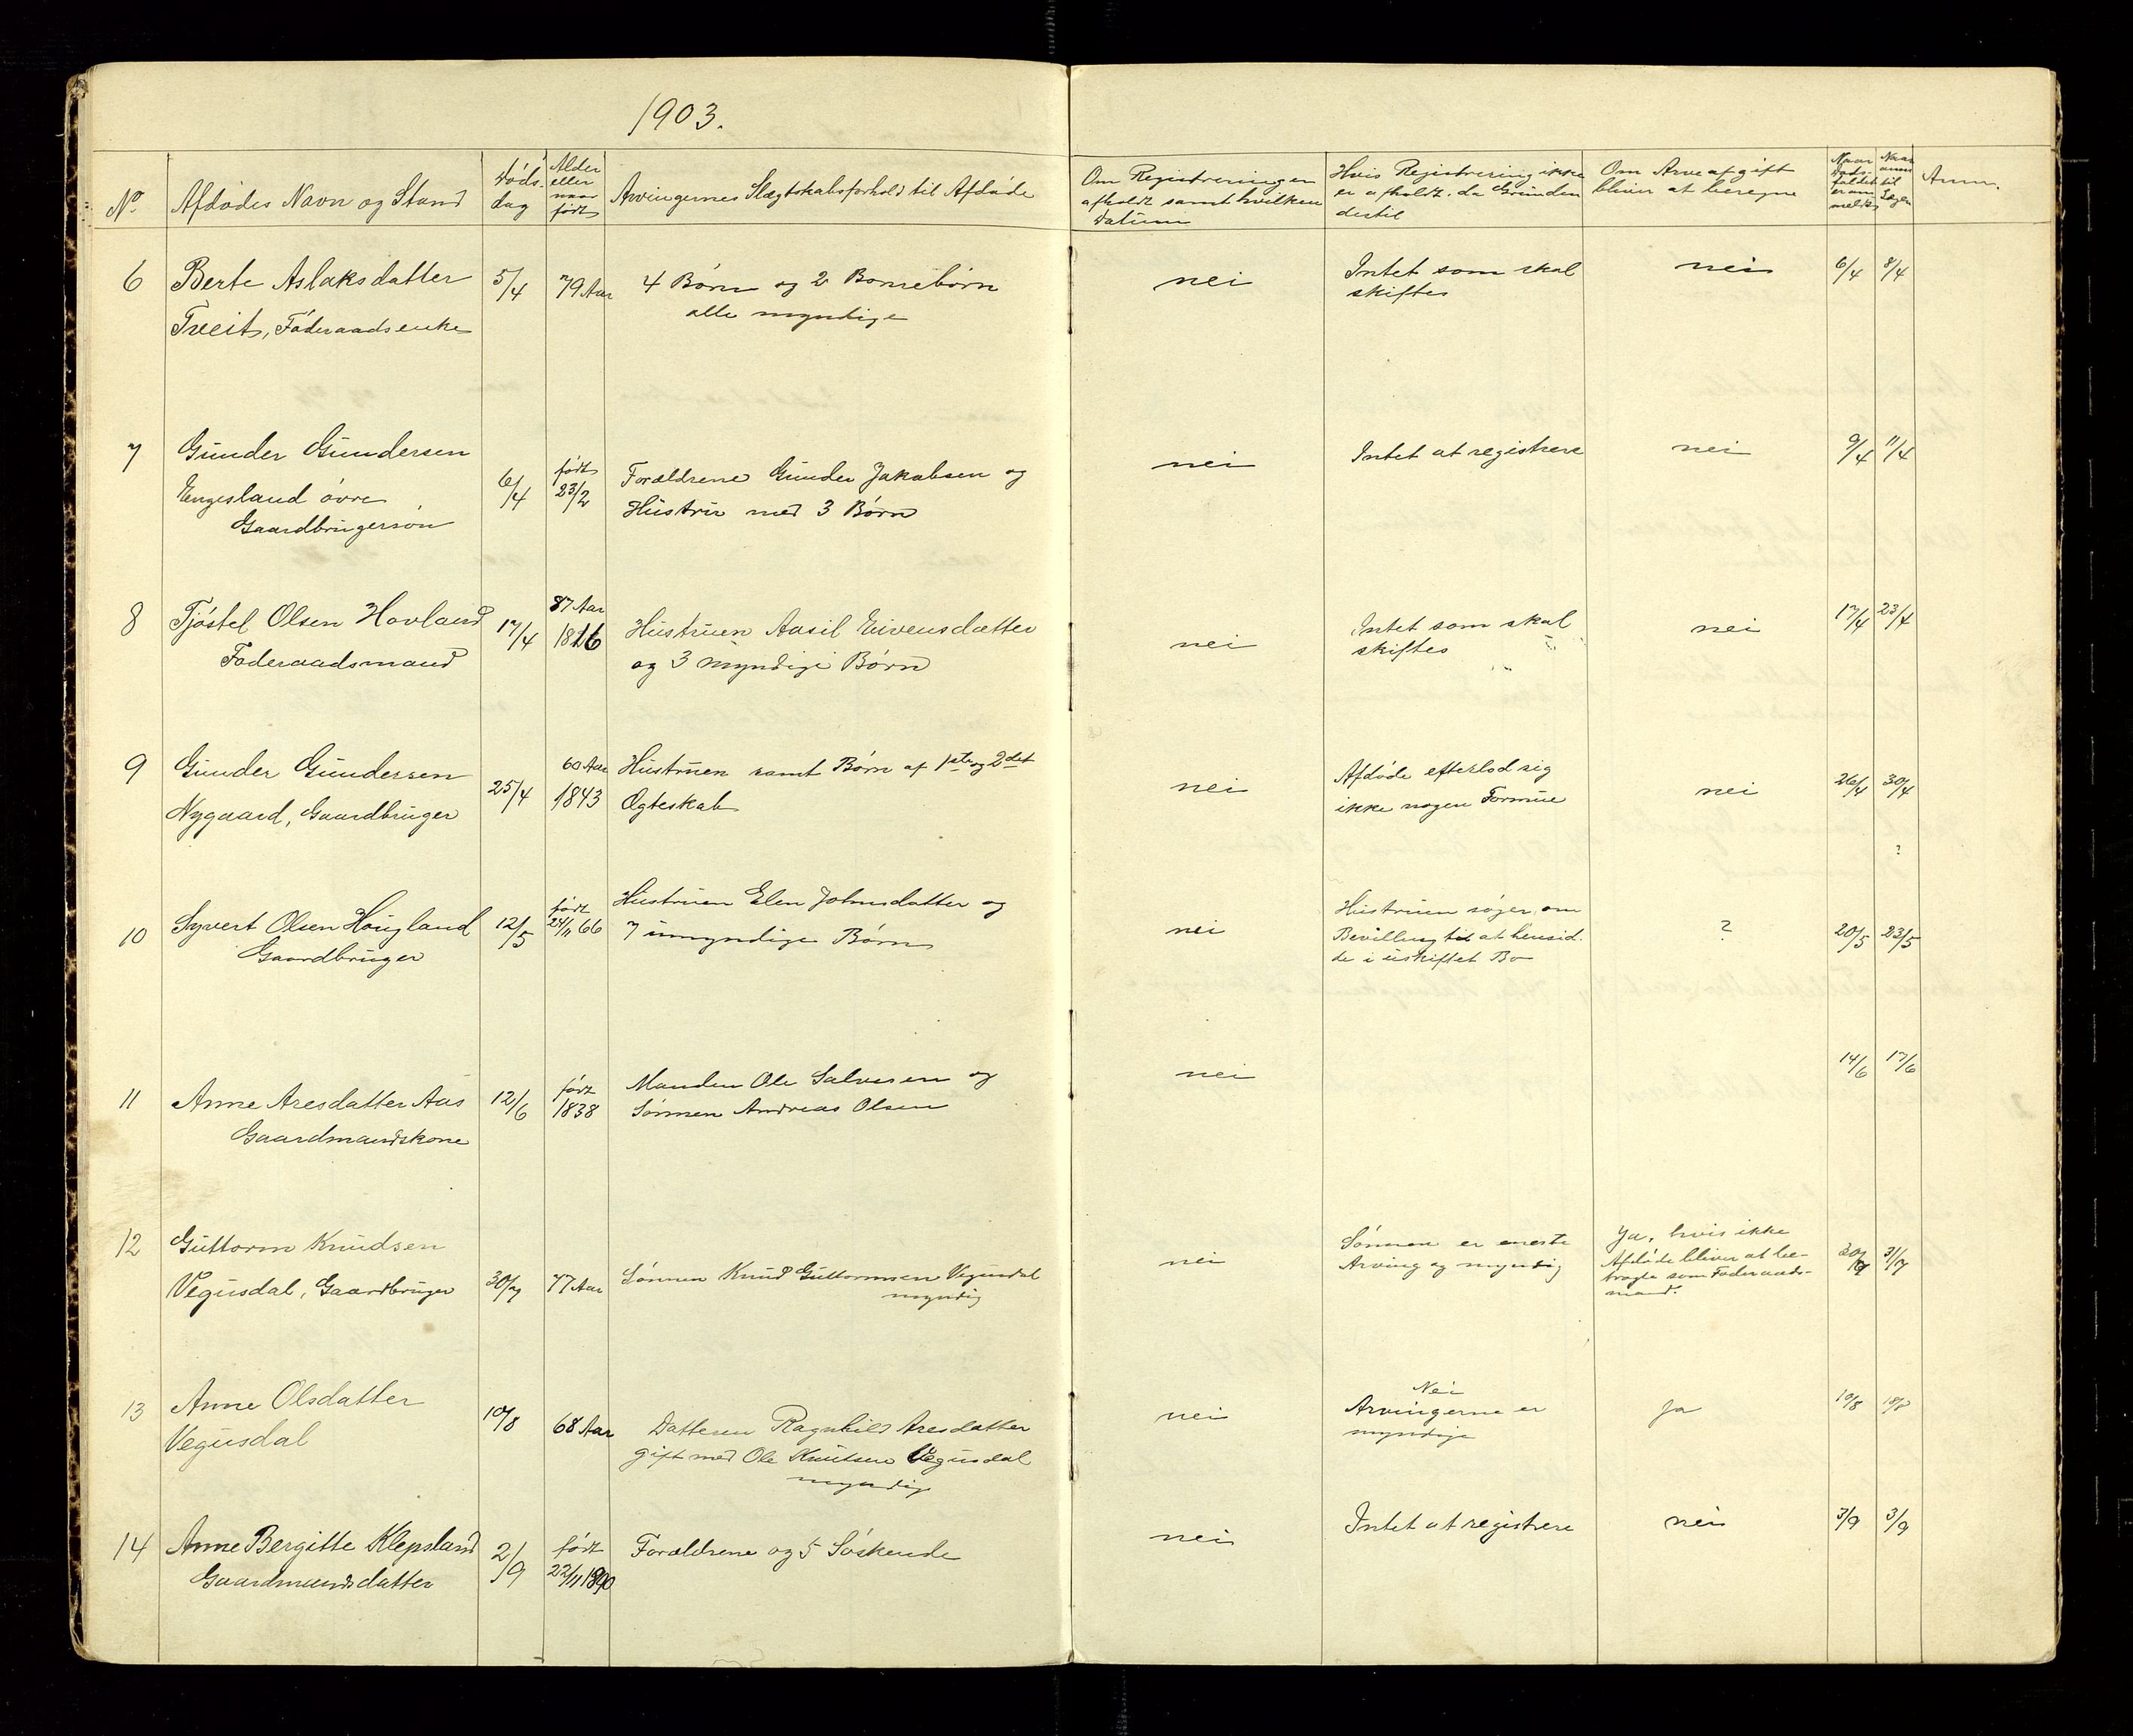 1903.
No. Afdødes Navn og Stand Døds-dag Alder eller naar født Arvingernes Slægtskabsforhold til Afdøde Om Registreringen afholdt samt hvilken Datum Hvis Registrering ikke er afholdt, da Grunden dertil Om Arveafgift bliver at beregne Naar Dødsfaldet er anmeldt Naar anm til Anm.
6 Berte Aslaksdatter 5/4 79 Aar 4 Børn og 2 Børnebørn nei Intet som skal nei 6/4 8/4
Treit, Føderaadsenke alle myndige skiftes
7 Gunder Gundersen 6/4 født 23/2 Forældrene Gunder Jakobsen og nei Intet at registrere nei 9/4 11/4
Engesland øvre Hustru med 3 Børn
Gaardbrugersøn
8 Tjøstel Olsen Hovland 17/4 87 Aar 1816 Hustruen Aasil Eivensdatter nei Intet som skal nei 17/4 23/4
Føderaadsmand og 3 myndige Børn skiftes
9 Gunder Gundersen 25/4 60 Aar 1843 Hustruen samt Børn af 1ste og 2det nei Afdøde efterlod sig nei 26/4 30/4
Nygaard, Gaardbruger Ægteskab ikke nogen Formue
?
10 Syvert Olsen Hougland 12/5 født 24/11 66 Hustruen Elen Johnsdatter og nei Hustruen søger om ? 20/5 23/5
Gaardbruger 7 umyndige Børn Bevilling til at hensid-
de i uskiftet Bo
11 Anne Aresdatter Aas 12/6 født 1838 Manden Ole Salvesen og nei 14/6 17/6
Gaardmandskone Sønnen Andreas Olsen
12 Guttorm Knudsen 30/7 77 Aar Sønnen Knud Guttormsen Vegusdal nei Sønnen er eneste Ja, hvis ikke 30/7 31/7
Vegusdal, Gaardbruger myndig Arving og myndig Afdøde bliver at be-
tragte som Føderaads-
mand.
13 Anne Olsdatter 10/8 68 Aar Datteren Ragnhild Aresdatter nei Nei Ja 10/8
Vegusdal gift med Ole Knutsen Vegusdal Arvingerne er
myndig myndige
14 Anne Bergitte Klepsland 2/9 født 22/11 1890 Forældrene og 5 Søskende nei Intet at registrere nei 3/9 3/9
Gaardmandsdatter